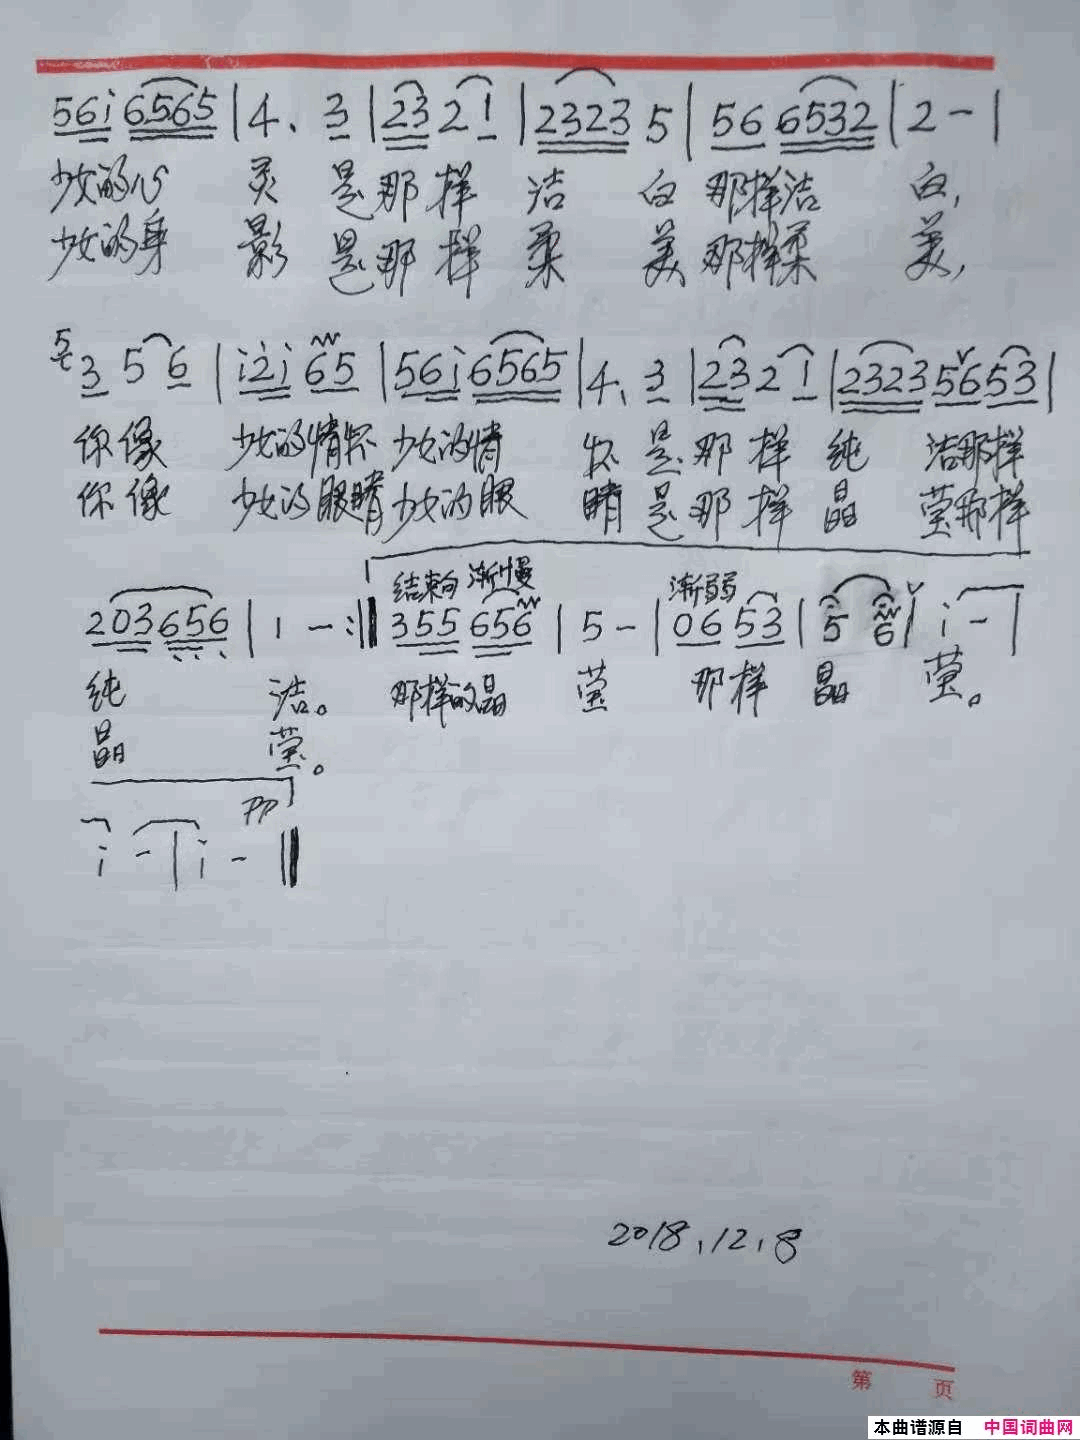 56i 6565 | 4. 3 | 23 2 1 | 2323 5 | 56 6532 | 2 - |
少女的心 灵 是那 样 洁 白 那样洁 白,
少女的身 影 是那 样 柔 美 那样柔 美,
5 3 5 6 | i2i 65 | 56i 6565 | 4. 3 | 23 2 1 | 2323 5653 |
你像 少女的情怀 少女的情 怀 是 那 样 纯 洁那样
你像 少女的眼睛 少女的眼 睛 是 那 样 晶 莹那样
结束句 渐慢 渐弱
203 656 | 1 - :‖ 355 656 | 5 - | 06 53 | 5 6 | i - |
纯 洁。 那样的晶 莹 那样 晶 莹。
晶 莹。
pp
i - | i - ‖
2018.12.8
第 页
本曲谱源自 中国词曲网